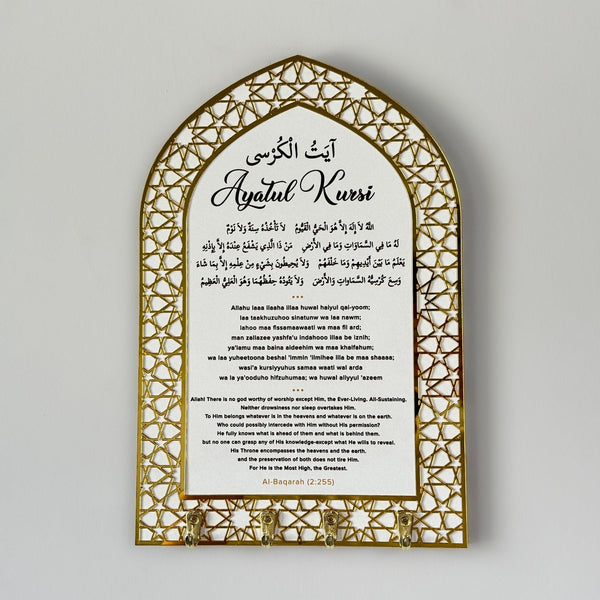 آيَتُ الْكُرْسى
Ayatul Kursi
اللهُ لاَ إِلَهَ إِلاَّ هُوَ الْحَيُّ الْقَيُّومُ لاَ تَأْخُذُهُ سِنَةٌ وَلاَ نَوْمٌ
لَهُ مَا فِي السَّمَاوَاتِ وَمَا فِي الأَرْضِ مَن ذَا الَّذِي يَشْفَعُ عِنْدَهُ إِلاَّ بِإِذْنِهِ
يَعْلَمُ مَا بَيْنَ أَيْدِيهِمْ وَمَا خَلْفَهُمْ وَلاَ يُحِيطُونَ بِشَيْءٍ مِّنْ عِلْمِهِ إِلاَّ بِمَا شَاءَ
وَسِعَ كُرْسِيُّهُ السَّمَاوَاتِ وَالأَرْضَ وَلاَ يَئُودُهُ حِفْظُهُمَا وَهُوَ الْعَلِيُّ الْعَظِيمُ
Allahu laaa ilaaha illaa huwal haiyul qai-yoom;
laa taakhuzuhoo sinatunw wa laa nawm;
lahoo maa fissamaawaati wa maa fil ard;
man zallazee yashfa'u indahooo illaa be iznih;
ya'lamu maa baina aideehim wa maa khalfahum;
wa laa yuheetoona beshai 'immin 'ilmihee illa be maa shaaaa;
wasi'a kursiyyuhus samaa waati wal arda
wa la ya'ooduho hifzuhumaa; wa huwal aliyyul 'azeem
Allah! There is no god worthy of worship except Him, the Ever-Living, All-Sustaining.
Neither drowsiness nor sleep overtakes Him.
To Him belongs whatever is in the heavens and whatever is on the earth.
Who could possibly intercede with Him without His permission?
He fully knows what is ahead of them and what is behind them,
but no one can grasp any of His knowledge-except what He wills to reveal.
His Throne encompasses the heavens and the earth.
and the preservation of both does not tire Him.
For He is the Most High, the Greatest.
Al-Baqarah (2:255)